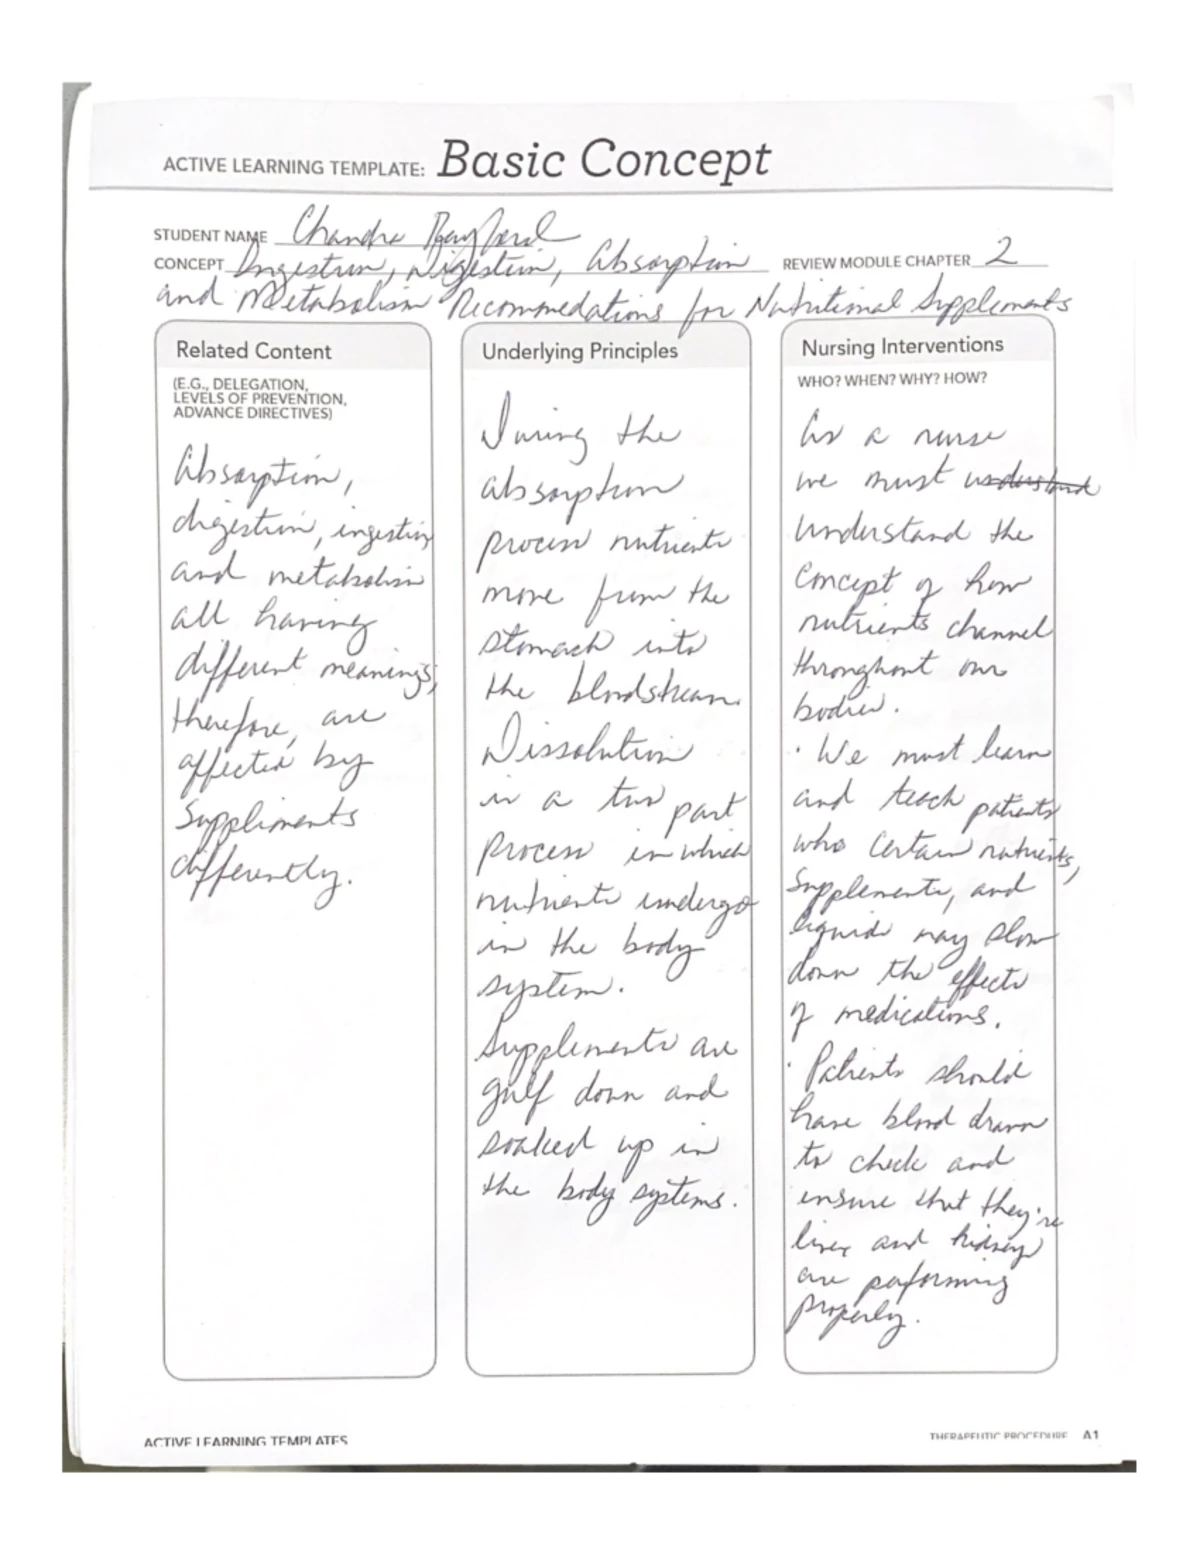 ACTIVE LEARNING TEMPLATE: Basic Concept
STUDENT NAME Chandra
CONCEPT Ingestion, Digestion, Absorption REVIEW MODULE CHAPTER 2
and Metabolism Recommedations for Nutritional Supplements
Related Content
(E.G., DELEGATION,
LEVELS OF PREVENTION,
ADVANCE DIRECTIVES)
Absorption,
digestion, ingestion
and metabolism
all having
different meanings,
therefore, are
affected by
Suppliments
differently.
Underlying Principles
During the
absorption
process nutrients
move from the
stomach into
the bloodstream.
Dissolution
is a two part
process in which
nutrients undergo
in the body
system.
Supplements are
gulf down and
soaked up in
the body systems.
Nursing Interventions
WHO? WHEN? WHY? HOW?
As a nurse
we must understand
understand the
concept of how
nutrients channel
throughout our
bodies.
· We must learn
and teach patients
who certain nutrients,
supplements, and
liquid may slow
down the effects
of medications.
· Patients should
have blood drawn
to check and
ensure that they're
liver and kidney
are performing
properly.
ACTIVE LEARNING TEMPLATES
THERAPEUTIC PROCEDURE A1